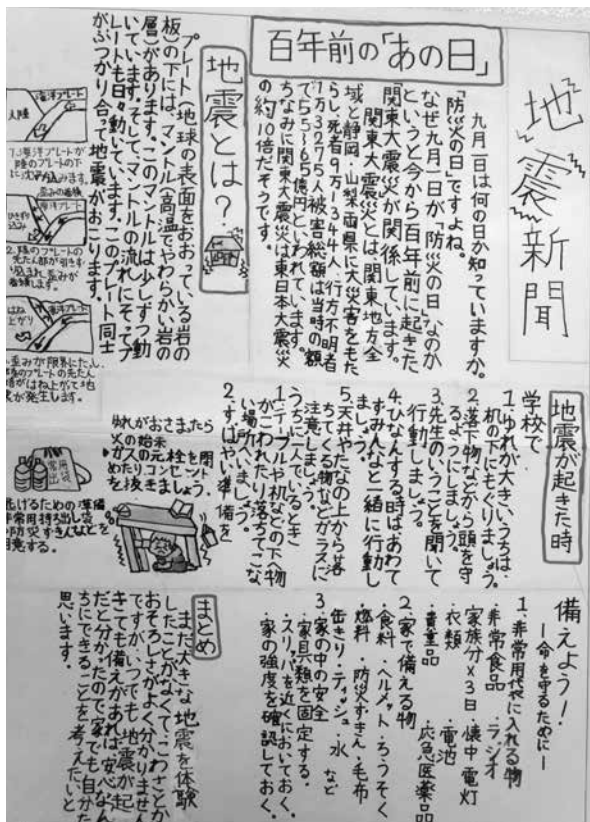 地震新聞
百年前の「あの日」
九月一日は何の日か知っていますか。
「防災の日」ですよね。
なぜ九月一日が「防災の日」なのか
というと今から百年前に起きた
関東大震災が関係しています。
関東大震災とは、関東地方全
域と静岡・山梨両県に大災害をもた
らし、死者9万1344人、行方不明者
1万3275人被害総額は当時の額
で55〜65億円といわれています。
ちなみに関東大震災は東日本大震災
の約10倍だそうです。
地震とは?
プレート(地球の表面をおおっている岩の
板)の下には、マントル(高温でやわらかい岩の
層)があります。このマントルは少しずつ動
いています。そして、マントルの流れにそってプ
レートも日々動いています。このプレート同士
がぶつかり合って地震がおこります。
海洋プレート
大陸
海洋プレートが
陸のプレートの下
に沈み込みます。
歪みの蓄積
海洋プレート
引きずり
込み
2.陸のプレートの
先たん部が引きず
り込まれ、歪みが
蓄積します。
はね
上がり
海洋プレート
歪みが限界にたっし、
陸のプレートの先たん
部がはね上がって地
震が発生します。
地震が起きた時
学校で
1.ゆれが大きいうちは、
机の下にもぐりましょう。
2.落下物などから頭を守
るようにしましょう。
3.先生のいうことを聞いて
行動しましょう。
4.ひなんする時はあわて
ずみんなと一緒に行動し
ましょう。
5.天井やたなの上から落
ちてくる物などガラスに
注意しましょう。
うちに一人でいるとき
1.テーブルや机などの下へ物
がこわれたり落ちてこな
い場所へいましょう。
2.すばやい準備を
ゆれがおさまったら
火の始末
ガスの元栓を閉
めたりコンセント
を抜きましょう。
非常用
持出袋
逃げるための準備
非常用持ち出し袋
や防災ずきんなどを
用意する。
備えよう!
—命を守るために—
1.非常用袋に入れる物
・非常食品 ・ラジオ
家族分×3日 ・懐中電灯
・衣類 ・電池
・貴重品 ・応急医薬品
2.家で備える物
・食料・ヘルメット・ろうそく
・燃料・防災ずきん・毛布
缶きり・ティッシュ・水 など
3.家の中の安全
・家具類を固定する。
・スリッパを近くにおいておく。
・家の強度を確認しておく。
まとめ
まだ大きな地震を体験
したことがなくて、こわさとか
おそろしさがよく分かりません
ですが、いつでも地震が起
きても備えがあれば安心なん
だと分かったので家でも自分た
ちにできることを考えたいと
思います。